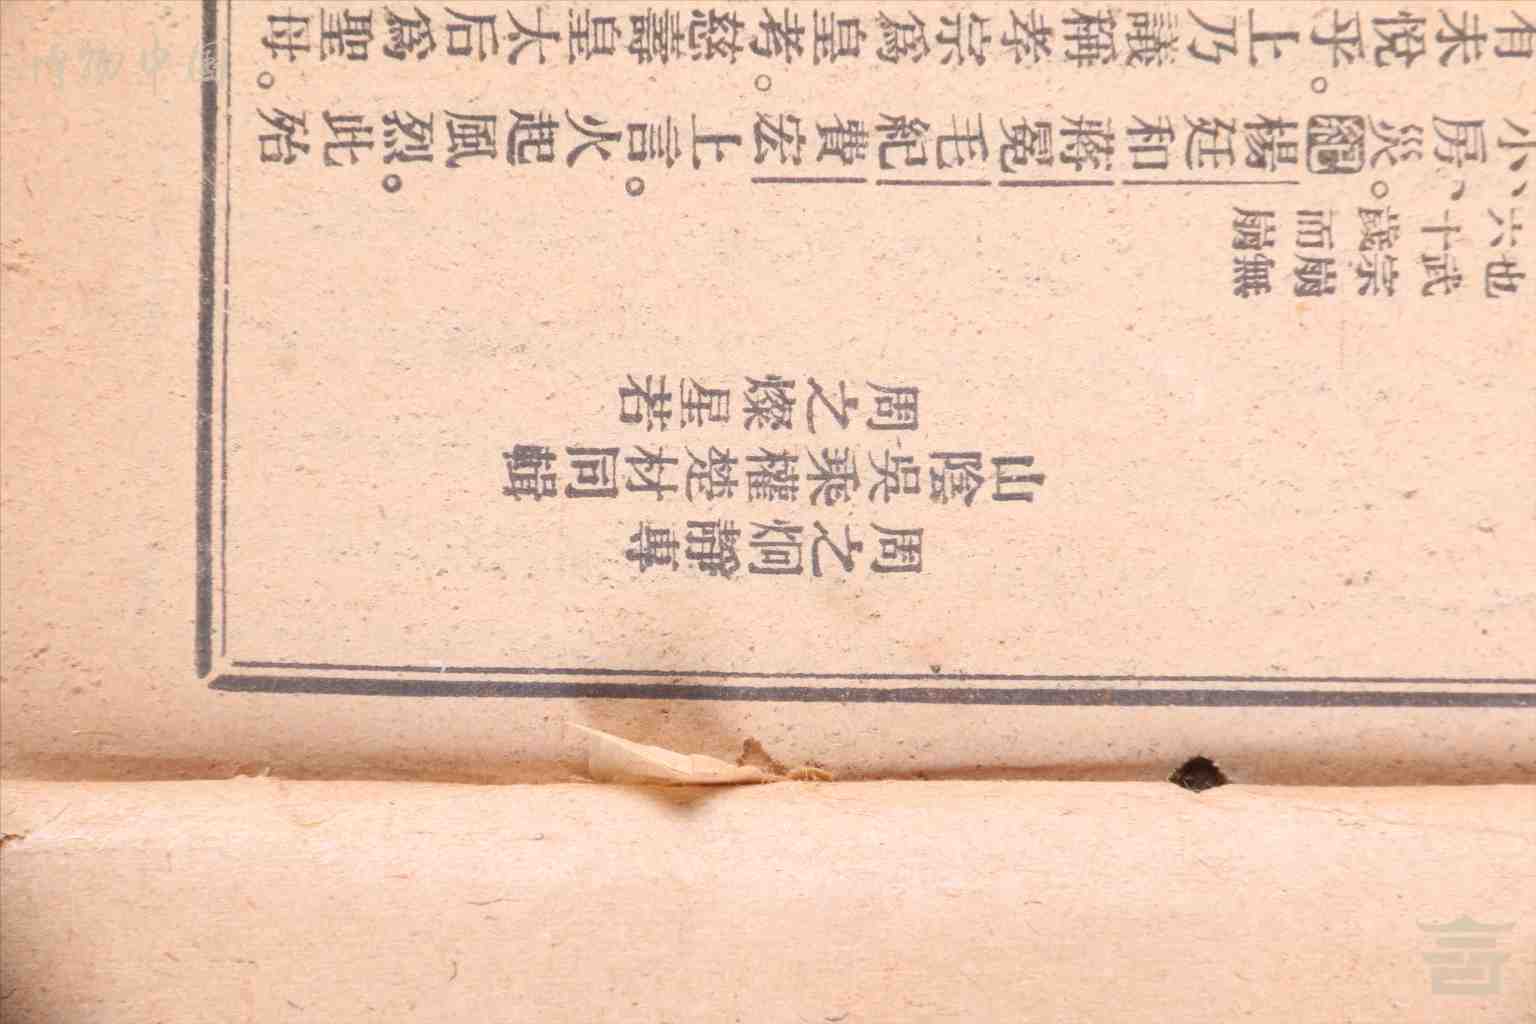 周之炯靜專
山陰吳乘權楚材同輯
周之燦星若
也武宗崩無
六十歲而崩
小房災。綱楊廷和蔣冕毛紀費宏上言。火起風烈。此殆
有未悅乎。上乃議稱孝宗爲皇考。慈壽皇太后爲聖母。
博物中國